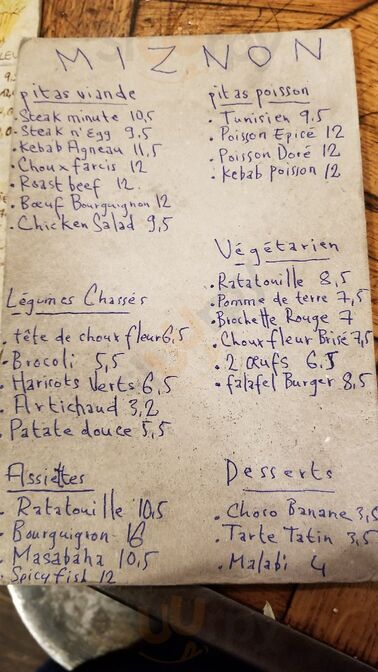 MIZNON
pitas viande
. Steak minute 10,5
. Steak n'Egg 9,5
. Kebab Agneau 11,5
. Choux farcis 12
. Roast beef 12.
. Bœuf Bourguignon 12
. Chicken Salad 9,5
pitas poisson
. Tunisien 9,5
. Poisson Epicé 12
. Poisson Doré 12
. Kebab poisson 12
Végétarien
. Ratatouille 8,5
. Pomme de terre 7,5
. Brochette Rouge 7
. Choux fleur Brisé 7,5
. 2 œufs 6.5
. falafel Burger 8,5
Légumes Chassés
. tête de choux fleur 6,5
. Brocoli 5,5
. Haricots Verts 6,5
. Artichaud 3,2
. Patate douce 5,5
Assiettes
. Ratatouille 10,5
. Bourguignon 16
. Masabaha 10,5
. Spicy fish 12
Desserts
. Choco Banane 3,5
. Tarte Tatin 3,5
. Malabi 4